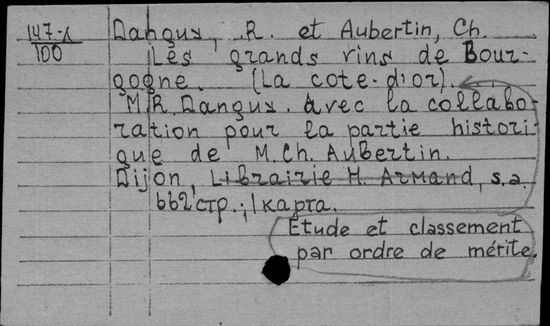 147-1
100
Danguy, R. et Aubertin, Ch.
Les grands vins de Bour-
gogne. (La cote-d'or).
M.R. Danguy. Avec la collabo-
ration pour la partie histori-
que de M.Ch. Aubertin.
Dijon, Librairie H. Armand, s.a.
662 стр.; 1 карта.
Étude et classement
par ordre de mérite.